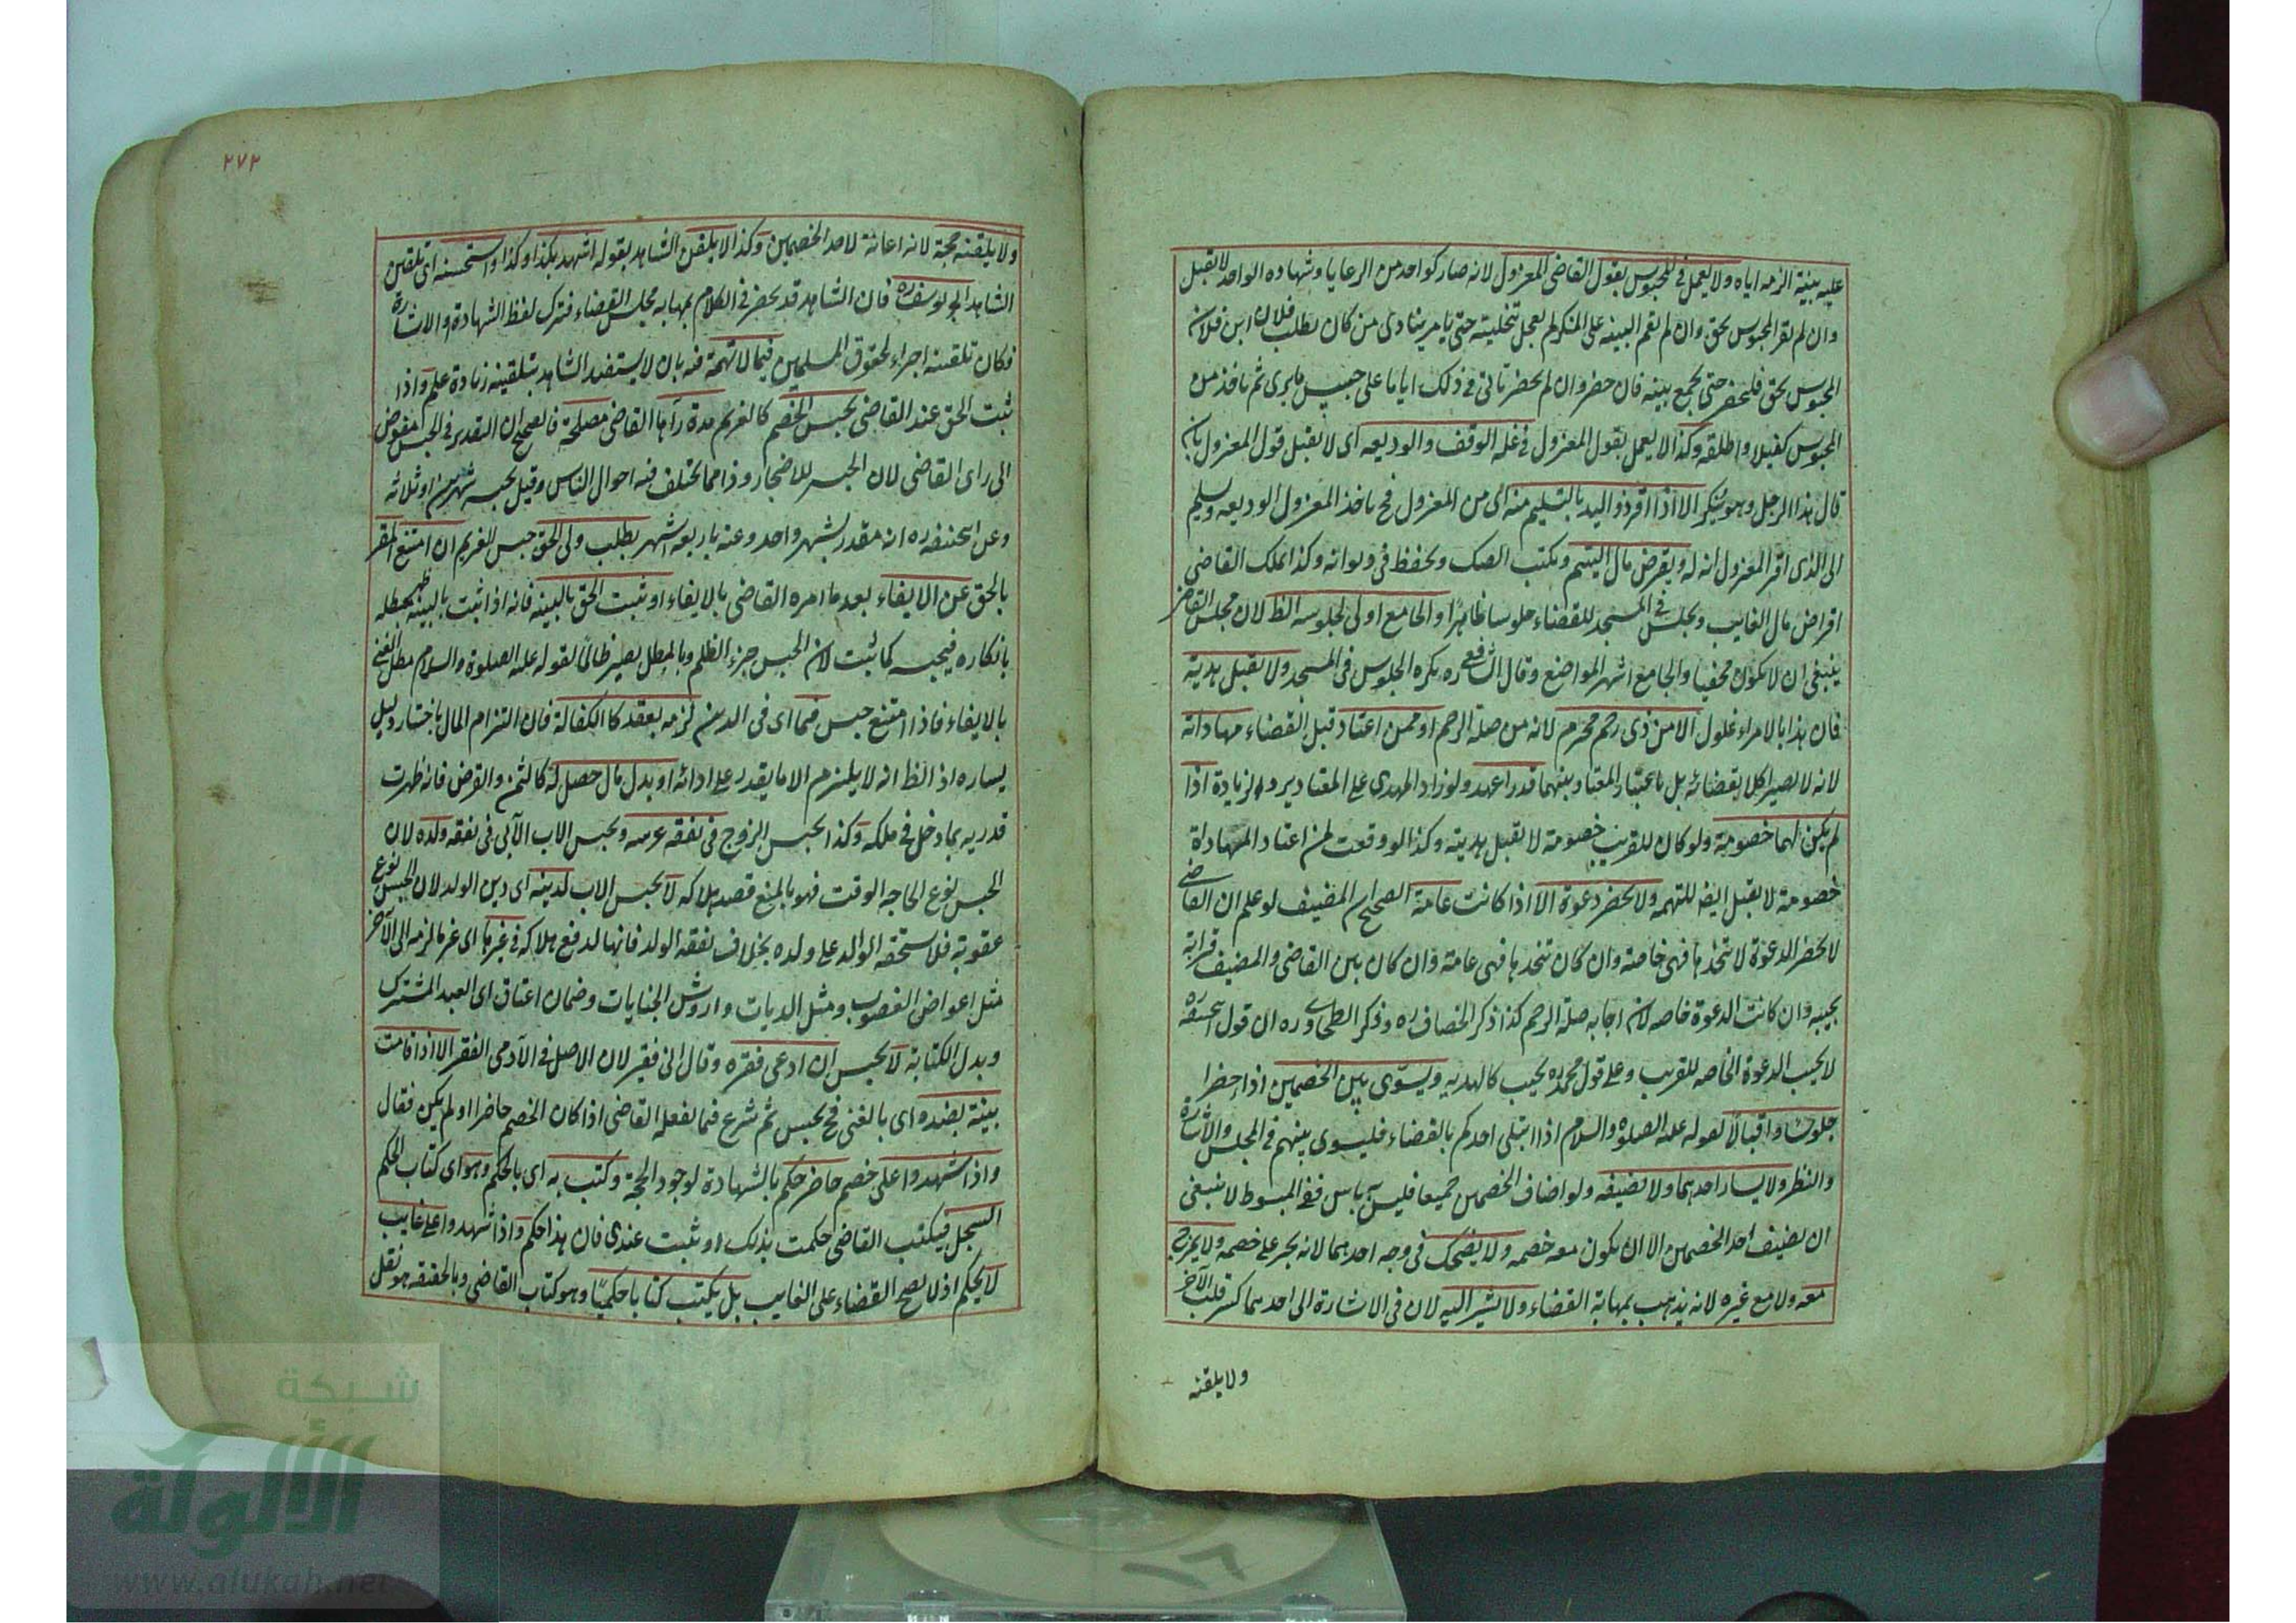 عليه ببينة الزمه اياه ولا يعمل في المحبوس بقول القاضي المعزول لانه صار كواحد من الرعايا وشهادة الواحد لا تقبل
وان لم يقر المحبوس بحق وان لم تقم البينه على المنكر لم يعجل تخليته حتى يامر ينادى من كان يطلب فلان ابن فلان
المحبوس بحق فليحضر حتى يجمع بينه فان حضر وان لم يحضر تانى في ذلك اياما على حسب ما يرى ثم ياخذ من
المحبوس كفيلا واطلقه وكذا لا يعمل بقول المعزول في غلة الوقف والوديعه اى لا يقبل قول المعزول بان
قال هذا الرجل وهو ينكر الا اذا اقر ذو اليد بالتسليم منه اى من المعزول فح ياخذ المعزول الوديعه ويسلم
الى الذى اقر المعزول انه له ويقرض مال اليتيم ويكتب الصك ويحفظ في ديوانه وكذا يملك القاضي
اقراض مال الغايب ويجلس في المسجد للقضاء جلوسا ظاهرا والجامع اولى لجلوسه الظ لان مجلس القاضي
ينبغي ان لا يكون مخفيا والجامع اشهر المواضع وقال الشافعي ره يكره الجلوس في المسجد ولا يقبل هدية
فان هدايا الامراء غلول الا من ذى رحم محرم لانه من صلة الرحم او ممن اعتاد قبل القضاء مهاداته
لانه لا يصير اكلا بقضائه بل باعتبار المعتاد بينهما قدرا عهد ولو زاد المهدى على المعتاد يرد الزيادة اذا
لم يكن لهما خصومة ولو كان للقريب خصومة لا يقبل هديته وكذا لو وقعت لمن اعتاد المهاداة
خصومة لا يقبل ايضا للتهمه ولا يحضر دعوة الا اذا كانت عامة الصحيح ان المضيف لو علم ان القاضي
لا يحضر الدعوة لا يتخذها فهى خاصة وان كان يتخذها فهى عامة وان كان بين القاضي والمضيف قرابة
يجيبه وان كانت الدعوة خاصه لان اجابه صلة الرحم كذا ذكر الخصاف ره وذكر الطحاوى ره ان قول ابيحنيفه
لا يجيب الدعوة الخاصه للقريب وعلى قول محمد ره يجيب كالهديه ويسوى بين الخصمين اذا حضرا
جلوسا واقبالا لقوله عليه الصلوة والسلام اذا ابتلى احدكم بالقضاء فليسوى بينهم في المجلس والاشارة
والنظر ولا يسار احدهما ولا يضيفه ولو اضاف الخصمين جميعا فليس به باس ففي المبسوط لا ينبغي
ان يضيف احد الخصمين الا ان يكون معه خصمه ولا يضحك في وجه احدهما لانه يجرء على خصمه ولا يمزح
معه ولا مع غيره لانه يذهب بمهابة القضاء ولا يشير اليه لان في الاشارة الى احدهما كسر قلب الآخر
ولا يلقنه
٢٧٢
ولا يلقنه حجة لانه اعانة لاحد الخصمين وكذا لا يلقن الشاهد بقوله اشهد بكذا وكذا واستحسنه اى تلقين
الشاهد ابو يوسف ره فان الشاهد قد يحصر في الكلام بمهابه مجلس القضاء فترك لفظ الشهادة والاشارة
فكان تلقينه اجراء لحقوق المسلمين فيما لا تهمة فيه بان لا يستفيد الشاهد بتلقينه زيادة علم واذا
ثبت الحق عند القاضي يحبس الخصم كالغريم مدة رآها القاضي مصلحة فالصحيح ان التقدير في الحبس مفوض
الى راى القاضي لان الحبس للاضجار وذا مما يختلف فيه احوال الناس وقيل يحبسه شهرين او ثلاثه
وعن ابيحنيفه ره انه مقدر بشهر واحد وعنه باربعة اشهر بطلب ولى الحق حبس الغريم ان امتنع المقر
بالحق عن الايفاء بعد ما امره القاضي بالايفاء او ثبت الحق بالبينه فانه اذا ثبت بالبينة ظهر مطله
بانكاره فيحبسه كما ثبت لان الحبس جزاء الظلم وبالمطل يصير ظالما لقوله عليه الصلوة والسلام مطل الغنى
بالايفاء فاذا امتنع حبس فيما اى في الدين لزمه بعقد كالكفالة فان التزام المال باختياره دليل
يساره اذ الظ انه لا يلتزم الا ما يقدر على ادائه او بدل مال حصل له كالثمن والقرض فانه ظهرت
قدرته بما دخل في ملكه وكذا يحبس الزوج في نفقه عرسه ويحبس الاب الآبى في نفقه ولده لان
الحبس نوع الحاجه الوقت فهو بالمنع قصد هلاكه لا يحبس الاب لدينه اى دين الولد لان الحبس نوع
عقوبة فلا يستحقه الوالد على ولده بخلاف نفقه الولد فانها لدفع هلاكه في غيرها اى غير ما لزمه الى الآخر
مثل اعواض الغصوب ومثل الديات واروش الجنايات وضمان اعتاق اى العبد المشترك
وبدل الكتابة لا يحبس ان ادعى فقره وقال انى فقير لان الاصل في الآدمى الفقر الا اذا قامت
بينة بضده اى بالغنى فح يحبس ثم شرع فيما يفعله القاضي اذا كان الخصم حاضرا او لم يكن فقال
واذا شهدوا على خصم حاضر حكم بالشهادة لوجود الحجة وكتب به اى بالحكم وهو اى كتاب الحكم
السجل فيكتب القاضي حكمت بذلك او ثبت عندى فان هذا حكم واذا شهدوا على غايب
لا يحكم اذ لا يصح القضاء على الغايب بل يكتب كتابا حكميا وهو كتاب القاضي وبالحقيقه هو نقل
شبكة
الألوكة
www.alukah.net